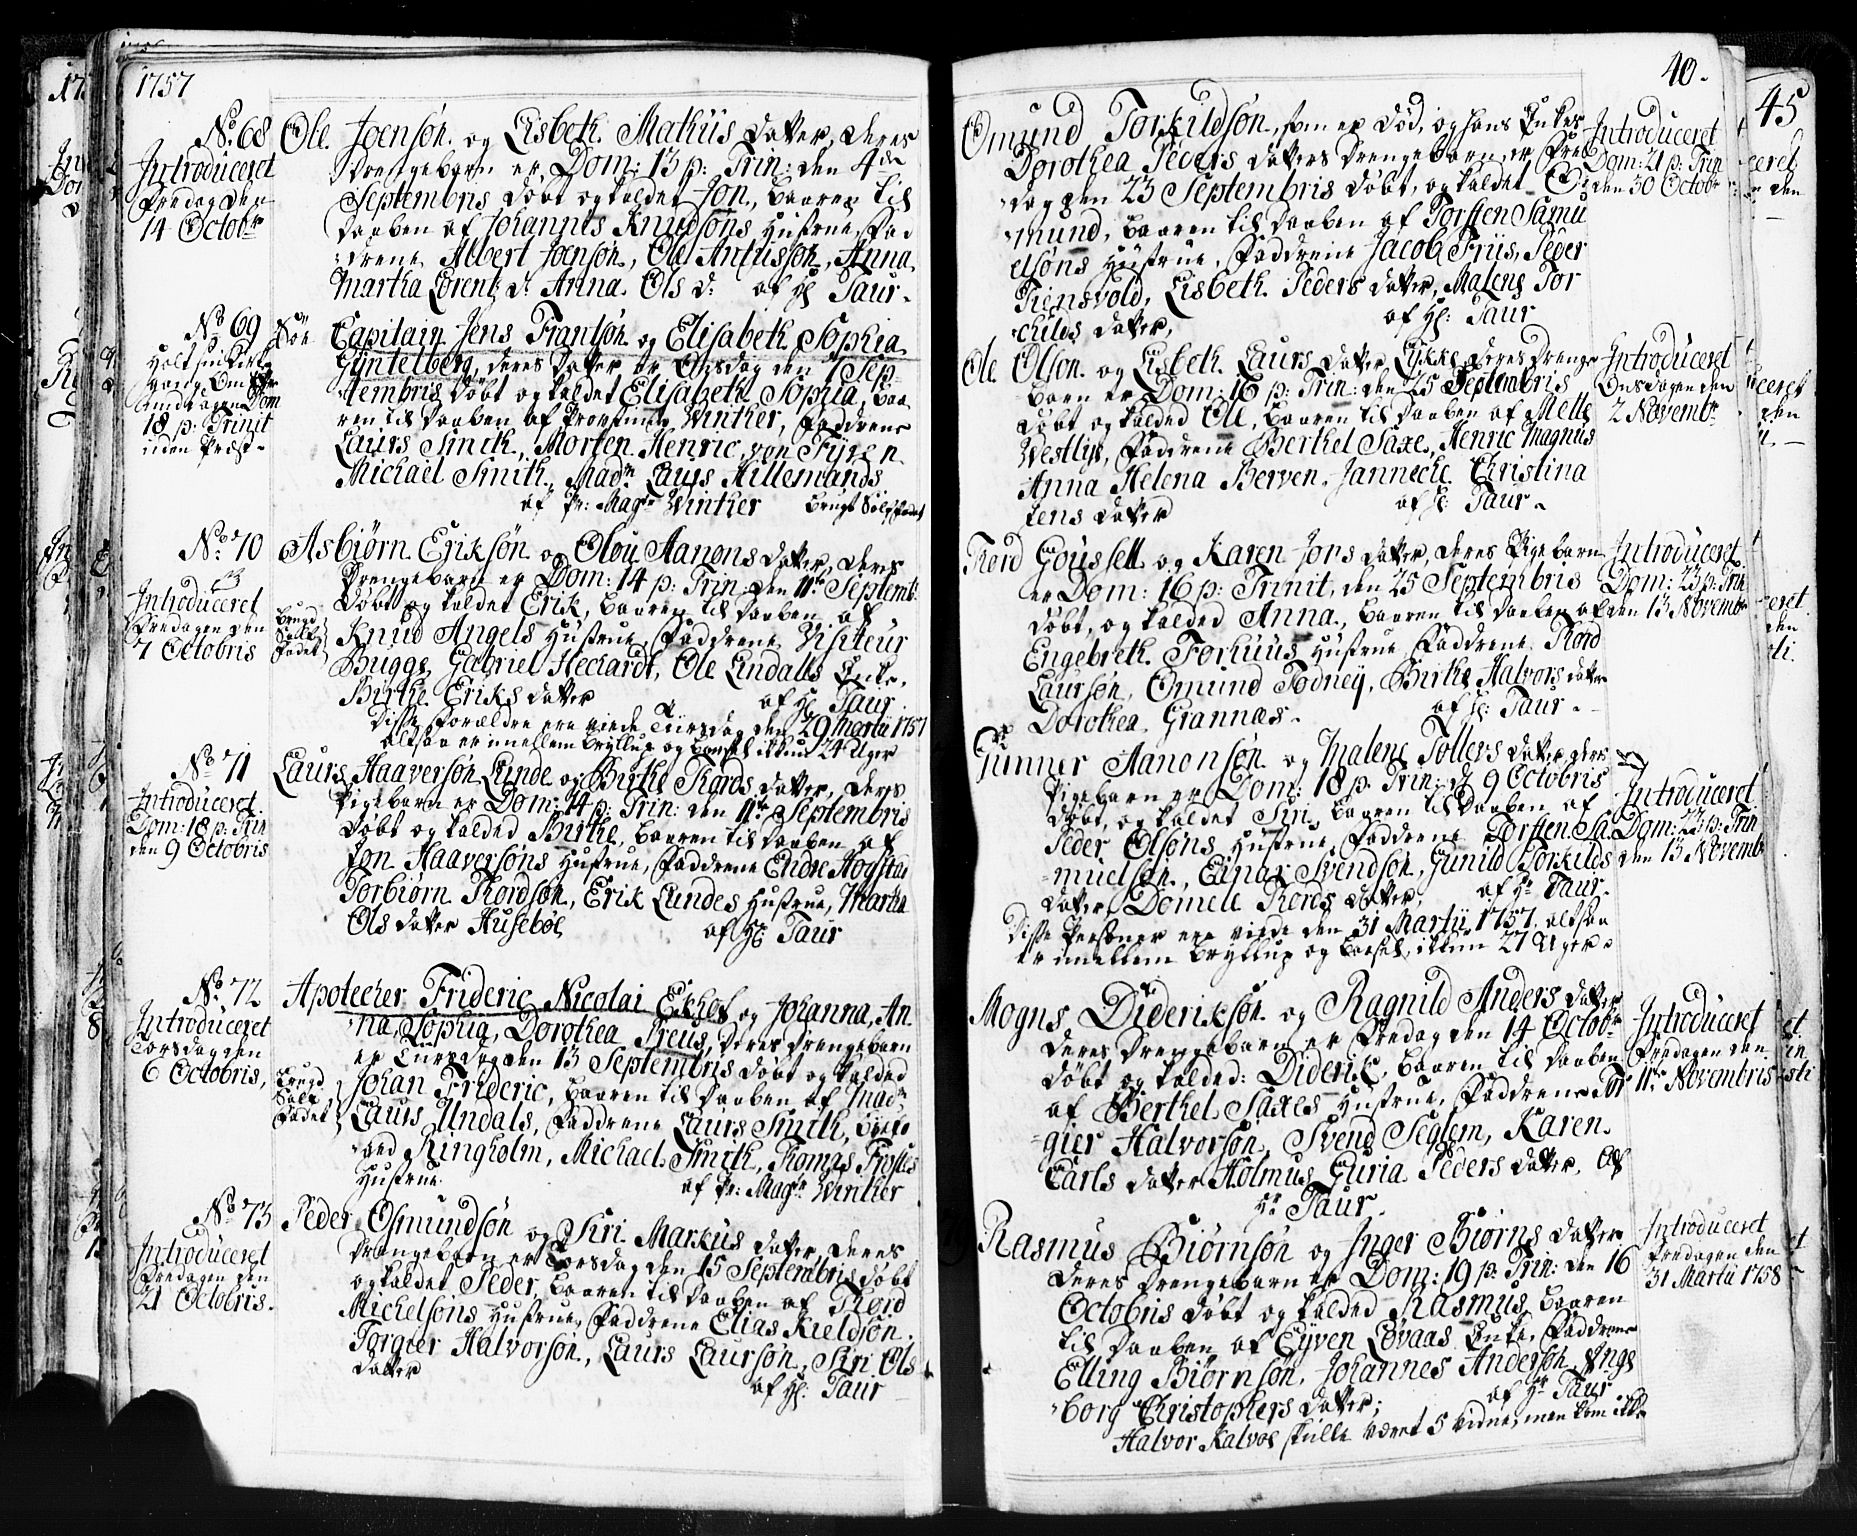 1757
No. 68
Introduceret
Fredag den
14 Octobr
Ole Joensøn og Lisbeth Mathiis datter, deres
drengebarn er Dom: 13 p: Trin: den 4de
Septembris døbt og kaldet Jon, baaren til
daaben af Johannes Knudsøns Hustrue, Fad
drene Albert Joensøn, Ole Antusson, Anna
Martha Lorentz d: Anna Ols d: af H: Taur.
No. 69
18 p: Trinit
uden Præst
Søn Capitain Jens Frantsøn og Elisabeth Sophia
Gyntelberg, deres datter er Onsdag den 7 Sep-
tembris døbt og kaldet Elisabeth Sophia, baa
ren til daaben af Provstinde Winther, Faddrene
Laurs Smith, Morten Henric von Fyren
Michael Smith, Madm Laurs Hillemands
af Pr: Magr Winther brugt Sølvfadet
No. 70
Introduceret
Fredagen den
7 Octobris
brugd
Sølv
Fadet
Asbiørn Eriksøn og Olou Aanons datter, deres
drengebarn er Dom: 14 p: Trin: den 11te Septemb:
døbt og kaldet Erik, baaren til daaben af
Knud Angels Hustrue, Faddrene Visiteur
Bugge, Gabriel Hechardt, Ole Lindalls Enke,
Birthe Eriks datter af H: Taur.
Disse Forældre ere viede Tiirsdag den 29 Martii 1757
altsaa er imellem bryllup og barsel ikkun 24 Uger
No. 71
Introduceret
Dom: 18 p: Trin
den 9 Octobris
Laurs Haaversøn Lunde og Birthe Thords datter, deres
Pigebarn er Dom: 14 p: Trin: den 11te Septembris
døbt og kaldet Birthe, baaren til daaben af
Jon Haaversøns Hustrue, Faddrene Endre Hogstad
Torbiørn Thordsøn, Erik Lundes Hustrue, Martha
Ols datter Husebøe af H: Taur
No. 72
Introduceret
Torsdag den
6 Octobris,
brugd
Sølv
Fadet
Apothecher Frideric Nicolai Eikhof og Johanna, An
na, Sophia, Dorothea Preus, deres drengebarn
er Tiirsdagen den 13 Septembris døbt og kaldet
Johan Frideric, baaren til daaben af Madm
Laurs Undals, Faddrene Laurs Smith,
Ringholm, Michael Smith, Thomas Frostes
Hustrue. af Pr: Magr Winther
No. 73
Introduceret
Fredagen den
21 Octobris.
Peder Osmundsøn og Siri Markus datter, deres
drengebarn er Torsdag den 15 Septembris døbt
og kaldet Peder, baaren til daaben af Thord
Michelsøns Hustrue, Faddrene Elias Kieldsøn
Torgier Halvorsøn, Laurs Laursøn, Siri Ols
datter af H: Taur
40.
Omund Torkildsøn, som er død, og hans Enkes
Dorothea Peders datters drengebarn, er Fre
dag den 23 Septembris døbt, og kaldet O
mund, baaren til daaben af Torsten Samu
elsøns Hustrue, Faddrene Jacob Friis, Peder
Tiensvold, Lisbeth Peders datter, Malene Tor
childs datter, af H: Taur
Introduceret
Dom: 21 p: Trin
den 30 Octobr
Ole Olson og Lisbeth Laurs datter Lykke, deres drenge
barn er Dom: 16 p: Trin: den 25 Septembris
døbt og kaldet Ole, baaren til daaben af Mette
Westlye, Faddrene Berthel Saxe, Henric Magnus
Anna Helena Berven, Jannecke Christina
Jens datter af H: Taur.
Introduceret
Onsdagen den
2 Novembr
Thord Gouslett og Karen Jons datter, deres Pigebarn
er Dom: 16 p: Trinit, den 25 Septembris
døbt, og kaldet Anna, baaren til daaben af
Engebreth Forhuus Hustrue, Faddrene Thord
Laursøn, Omund Todney, Birthe Halvors datter
Dorothea Grannæs. af H: Taur.
Introduceret
Dom: 23 p: Trin
den 13 Novembr
Gunner Aanonsøn og Malene Tollevs datter deres
Pigebarn er Dom: 18 p: Trin: d 9 Octobris
døbt, og kaldet Siri, baaren til daaben af
Peder Olsøns Hustrue, Faddrene Torsten Sa
muelsøn, Einar Svendsøn, Gunild Torkilds
datter, Domele Thords datter, af Hr Taur.
Disse Personer ere viede den 31 Martii 1757, altsaa
er imellem bryllup og barsel, ikkun 27 Uger.
Introduceret
Dom: 23 p: Trin
den 13 Novemb
Mogns Dideriksøn og Ragnild Anders datter
deres drengebarn er Fredag den 14 Octobr
døbt og kaldet: Diderik, baaren til daaben
af Berthel Saxes Hustrue, Faddrene Tor
gier Halvorsøn, Svend Seglem, Karen
Carls datter Holmus, Guria Peders datter, af
Hr Taur.
Introduceret
Fredagen den
11te Novembris
Rasmus Biørnsøn og Inger Biørns datter
deres drengebarn er Dom: 19 p: Trin: den 16
Octobris døbt og kaldet Rasmus, baaren
til daaben af Eyven Løvaas Enke, Faddrene
Elling Biørnsøn, Johannes Andersøn, Inge
borg Christophers datter; af Hr Taur
Halvor Kalvøe skulle været 5 vidne, men kom ikke
Introduceret
Fredagen den
31 Martii 1758
45